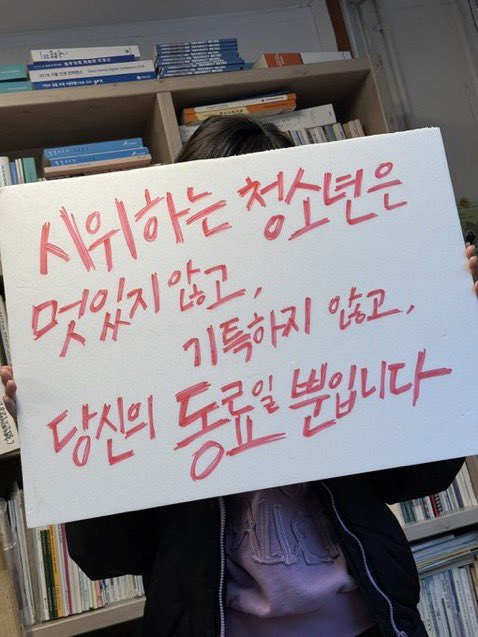 시위하는 청소년은
멋있지 않고,
기특하지 않고,
당신의 동료일 뿐입니다